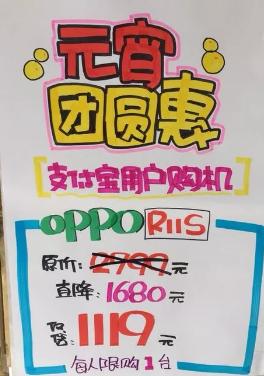 元宵
团圆惠
[支付宝用户购机]
oppo R11S
原价: 2799元
直降: 1680元
仅售: 1119元
每人限购1台